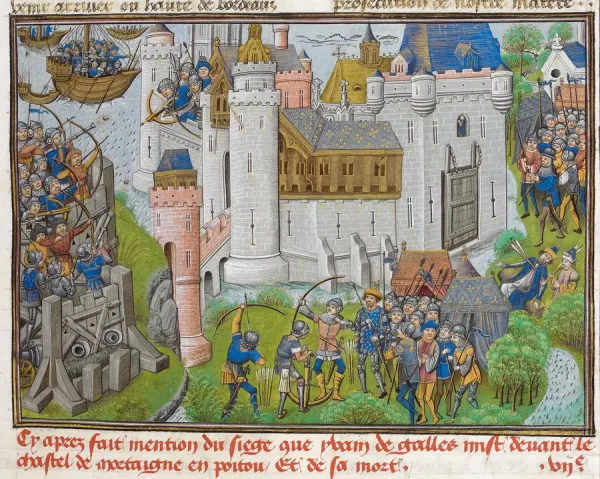 arriver ou haute de bordeaux prosecution de nostre matere
Cy aprez fait mention du siege que yvain de galles mist devant le
chastel de mortaigne en poitou Et de sa mort. .vii^e.